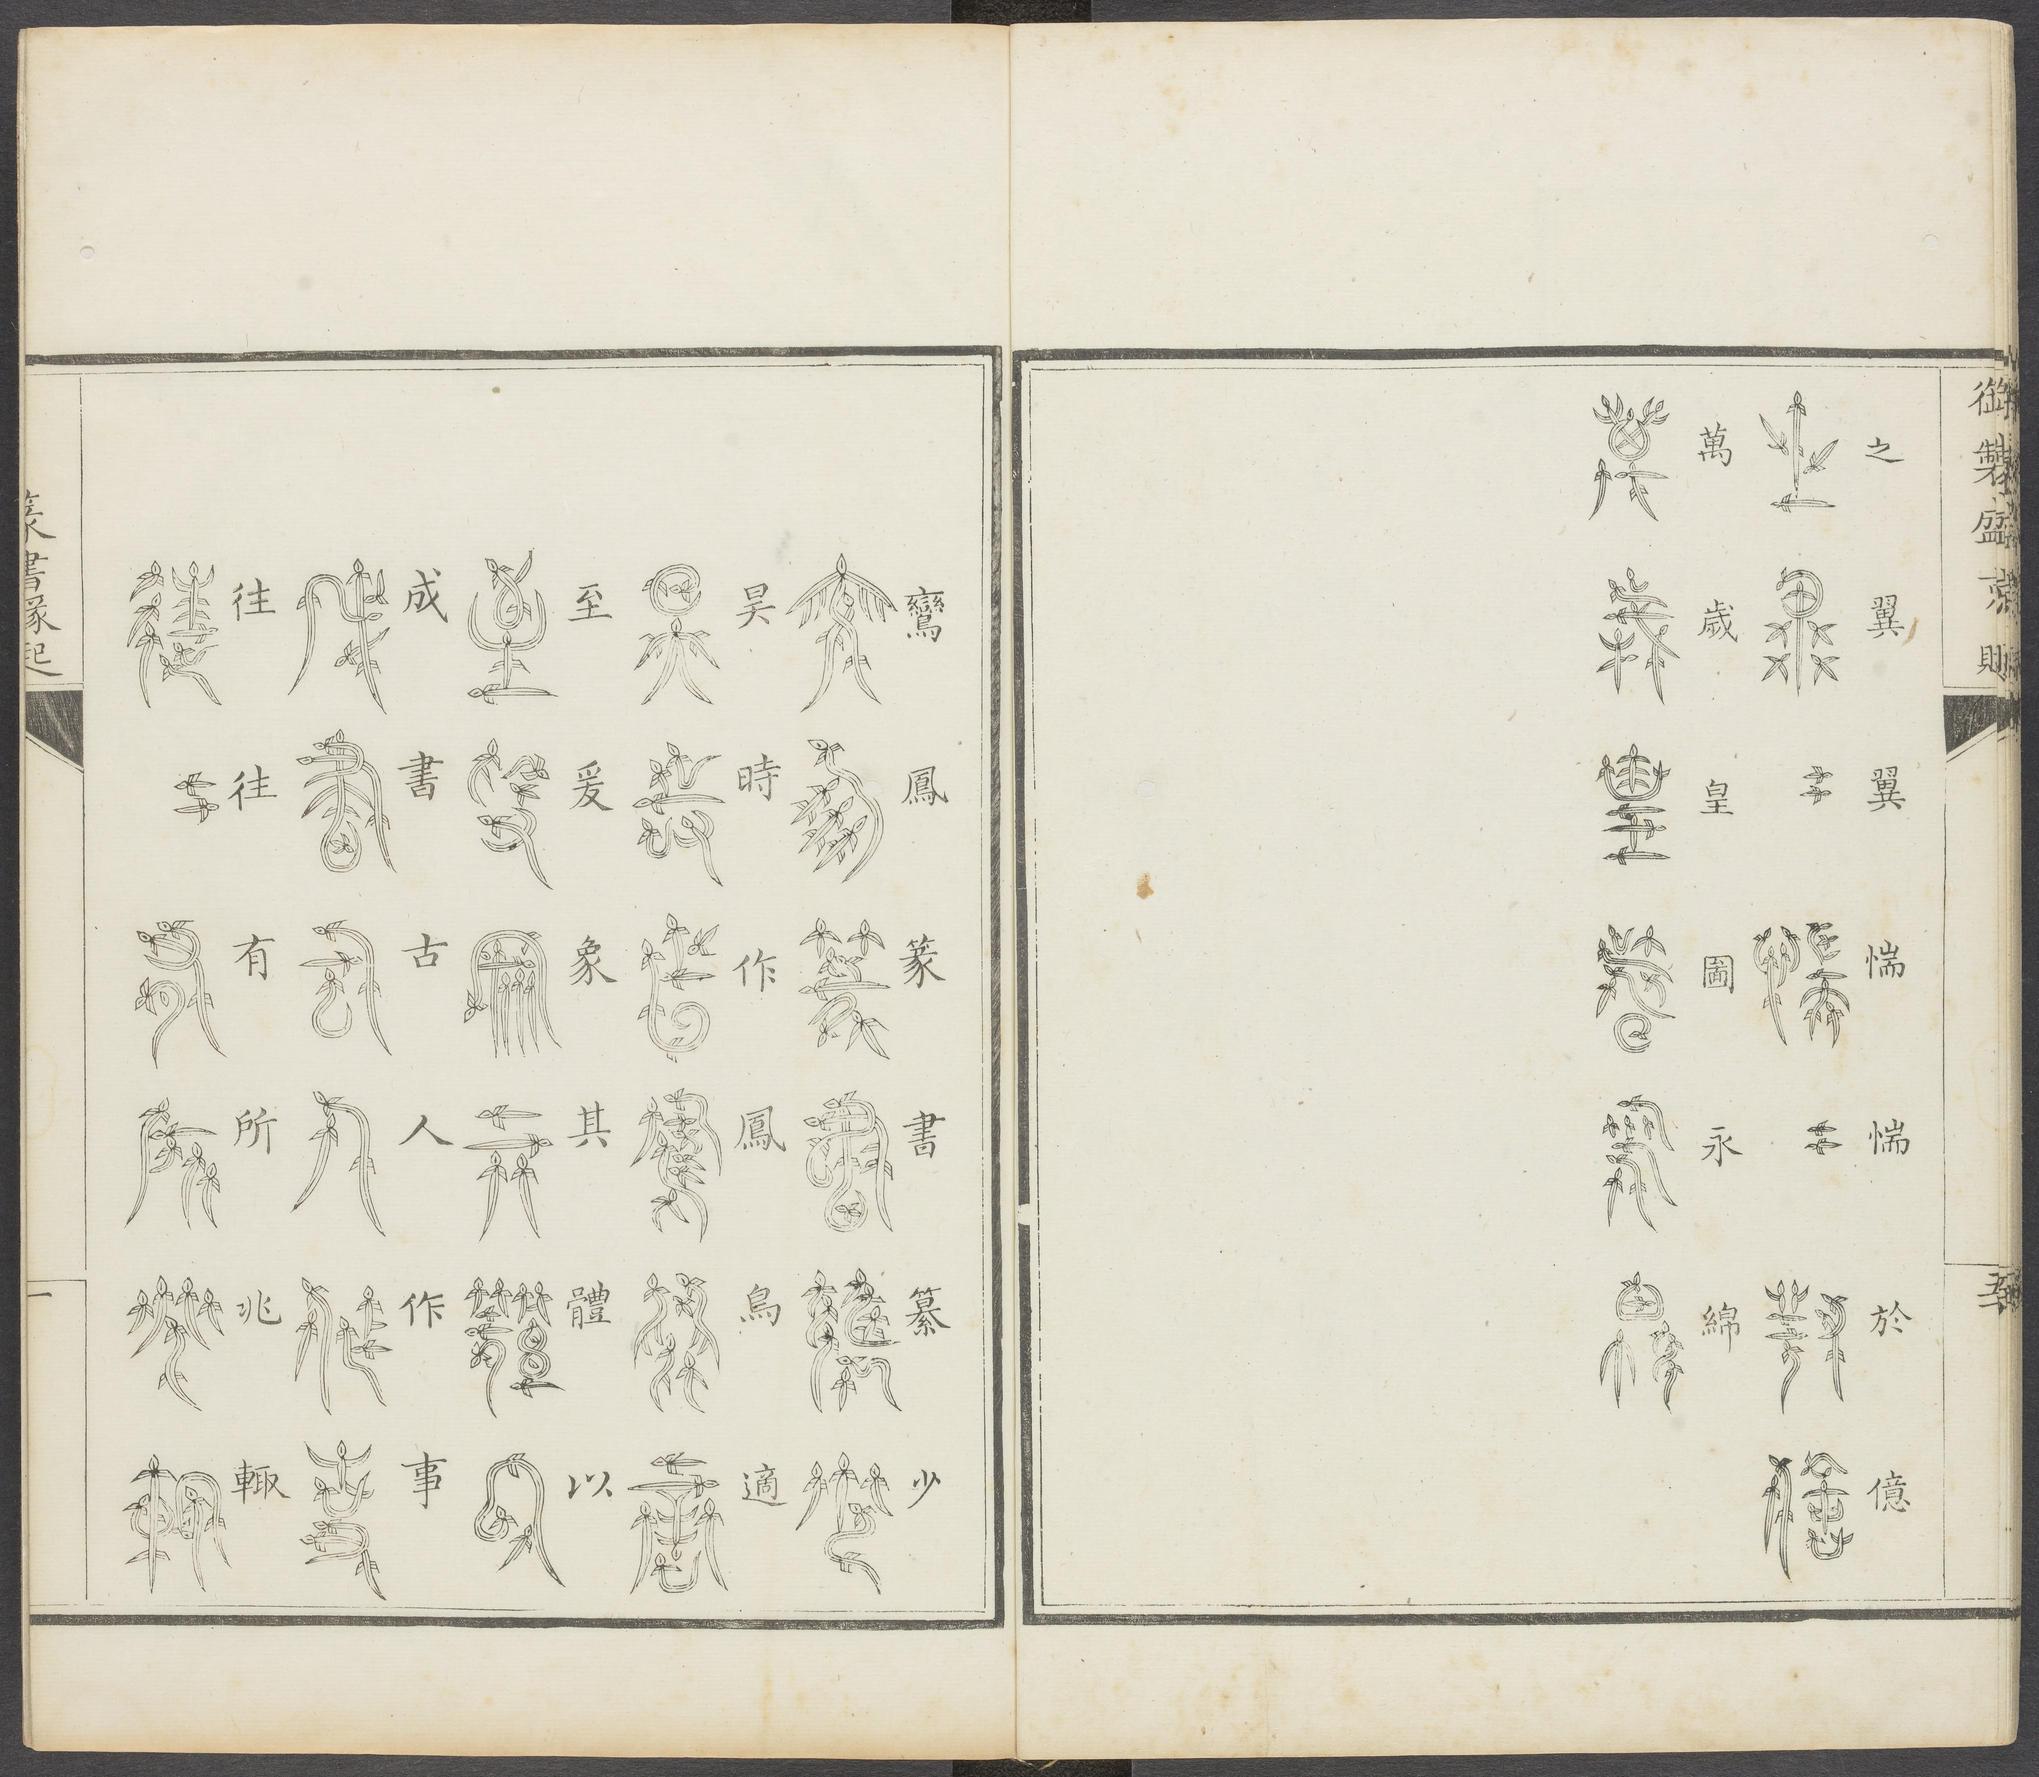 御製盛京賦
之翼翼惴惴於億
萬歲皇圖永綿
鸞鳳篆書纂少
昊時作鳳鳥適
至爰象其體以
成書古人作事
往往有所兆輒
篆書緣起
一